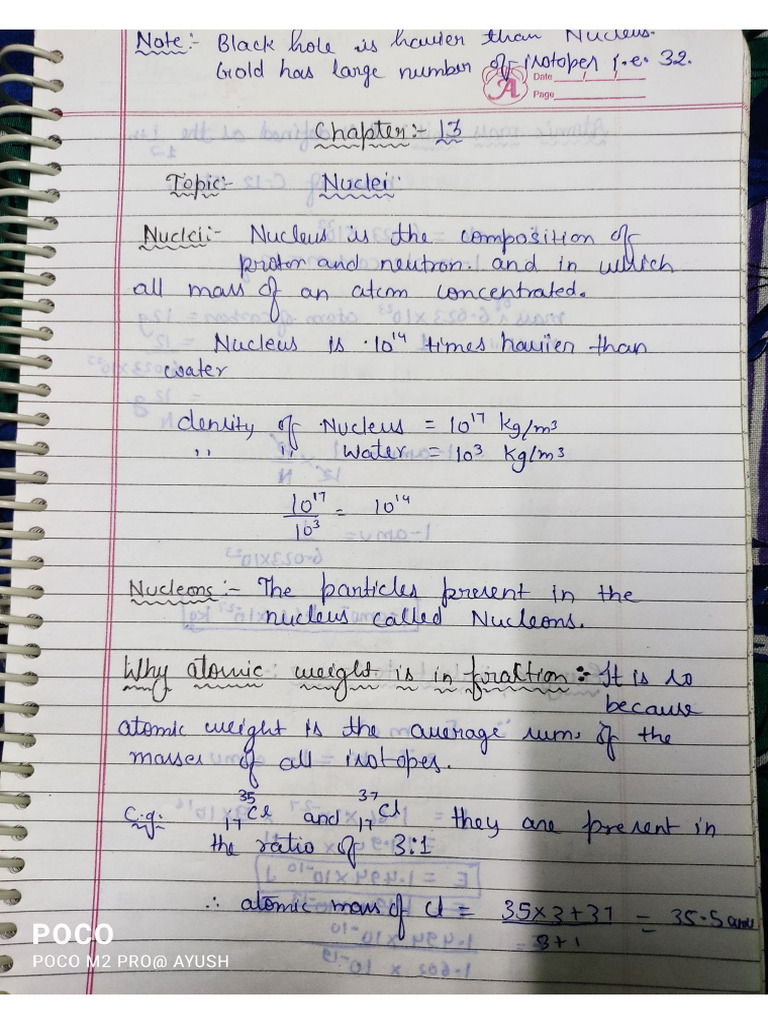 Note:- Black hole is havier than Nucleus.
Gold has large number of isotopes i.e. 32.
Date
Page
Chapter:- 13
Topic:- Nuclei
Nuclei:- Nucleus is the composition of
proton and neutron. and in which
all mass of an atom concentrated.
Nucleus is 10¹⁴ times havier than
water
density of Nucleus = 10¹⁷ kg/m³
,, ,, Water = 10³ kg/m³
10¹⁷/10³ = 10¹⁴
Nucleons:- The particles present in the
nucleus called Nucleons.
Why atomic weight is in fraction:- It is so
because
atomic weight is the average sum of the
masses of all isotopes.
e.g: ₁₇³⁵Cl and ₁₇³⁷Cl they are present in
the ratio of 3:1
∴ atomic mass of Cl = 35×3+37/3+1 = 35.5 amu
POCO
POCO M2 PRO@ AYUSH